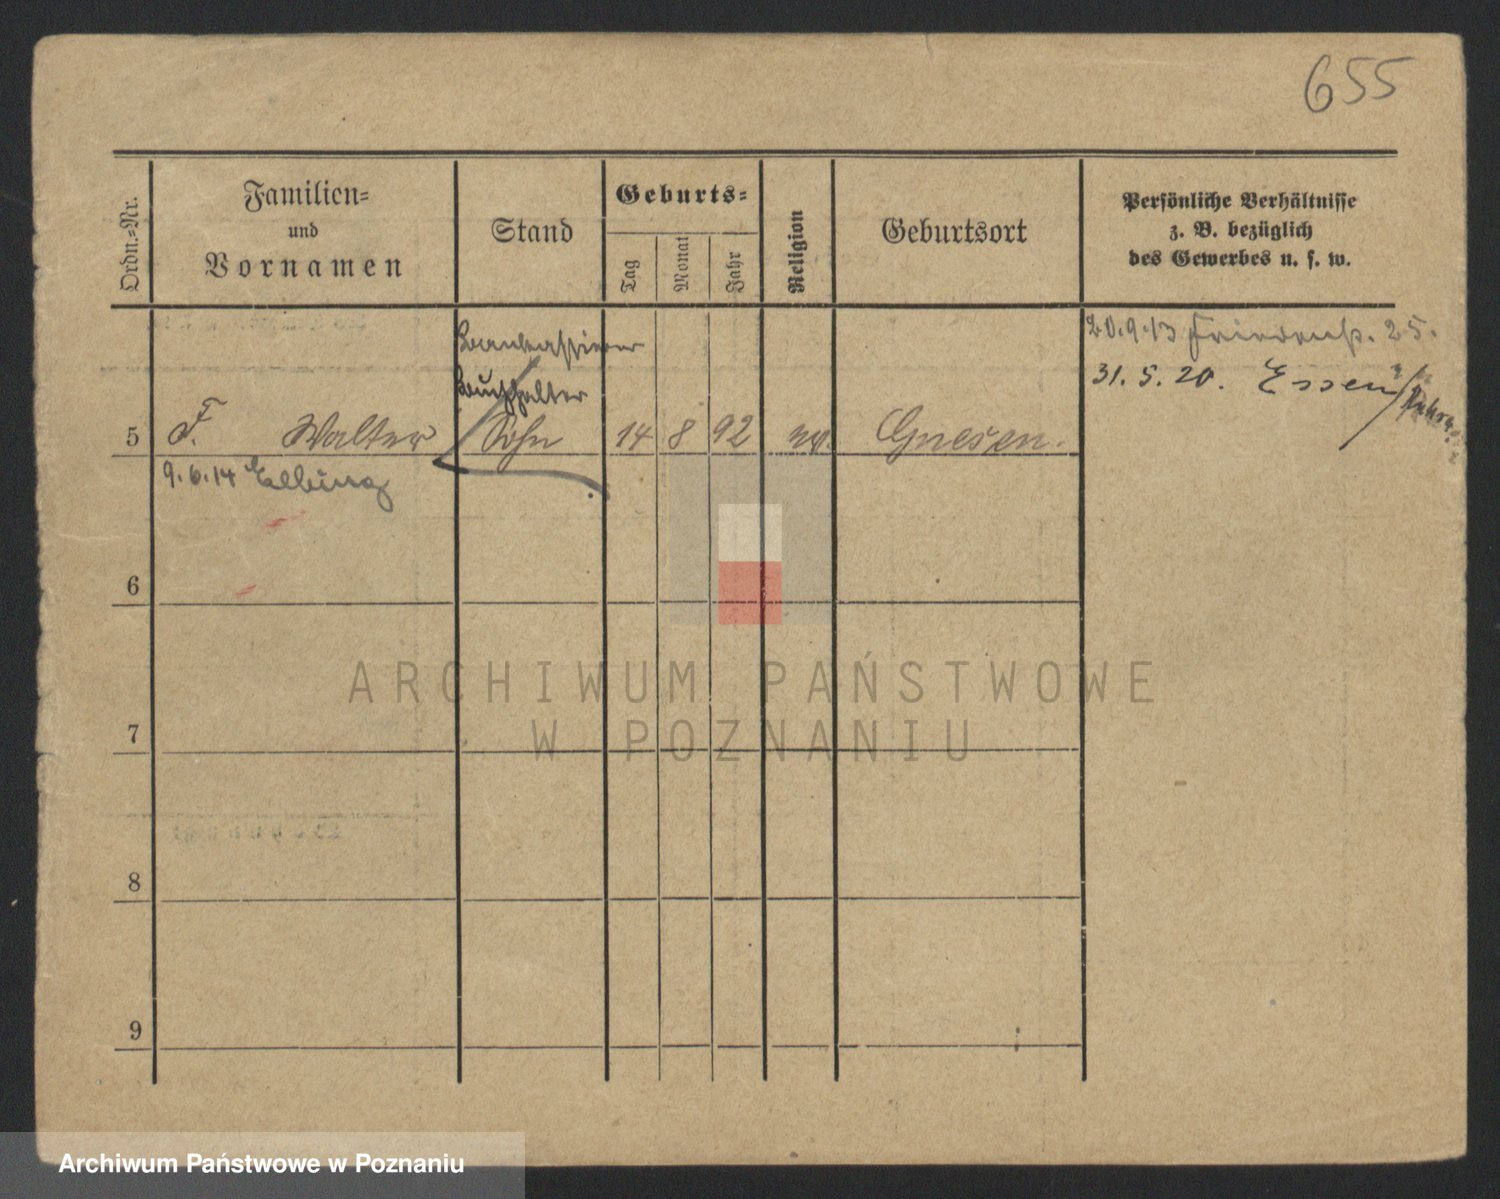 655
Ordn.-Nr.
Familien-
und
Vornamen
Stand
Geburts-
Tag
Monat
Jahr
Religion
Geburtsort
Persönliche Verhältnisse
z. B. bezüglich
des Gewerbes u. s. w.
20.9.13 Friedrichstr. 25.
31. 5. 20. Essen
Bankkassierer
Buchhalter
5 F. Walter Sohn 14 8 92 ev. Gnesen.
9.6.14 Elbing
6
7
8
9
ARCHIWUM PAŃSTWOWE
W POZNANIU
Archiwum Państwowe w Poznaniu